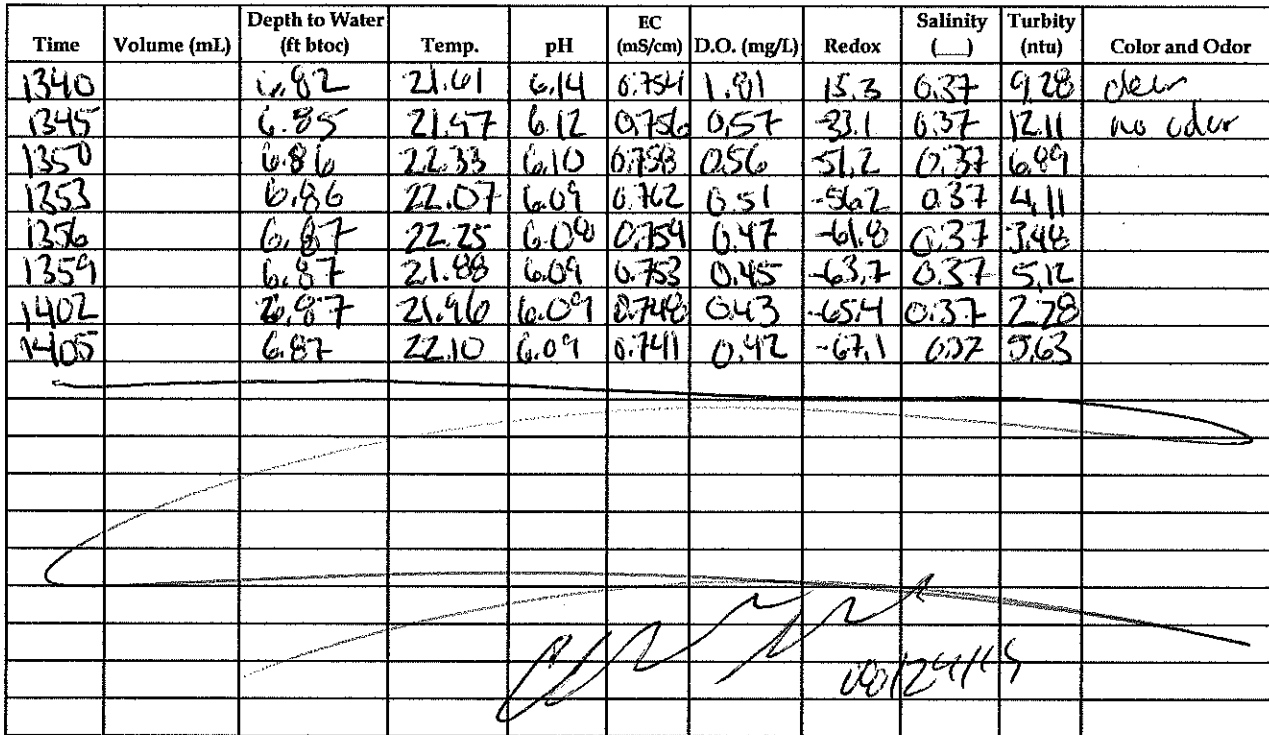 Time Volume (mL) Depth to Water (ft btoc) Temp. pH EC (mS/cm) D.O. (mg/L) Redox Salinity (___) Turbity (ntu) Color and Odor
1340 6.82 21.61 6.14 0.754 1.81 15.3 0.37 9.28 clear
1345 6.85 21.97 6.12 0.756 0.57 -33.1 0.37 12.11 no odor
1350 6.86 22.33 6.10 0.758 0.56 -51.2 0.37 6.89
1353 6.86 22.07 6.09 0.762 0.51 -56.2 0.37 4.11
1356 6.87 22.25 6.08 0.754 0.47 -61.8 0.37 3.48
1359 6.87 21.88 6.09 0.753 0.45 -63.7 0.37 5.12
1402 6.87 21.96 6.09 0.748 0.43 -65.4 0.37 2.28
1405 6.87 22.10 6.09 0.741 0.42 -67.1 0.37 5.63